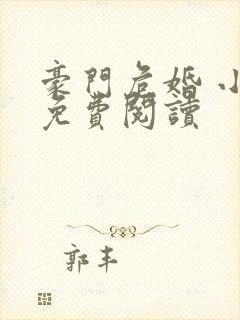 豪門危婚 小
免費閱讀
郭丰